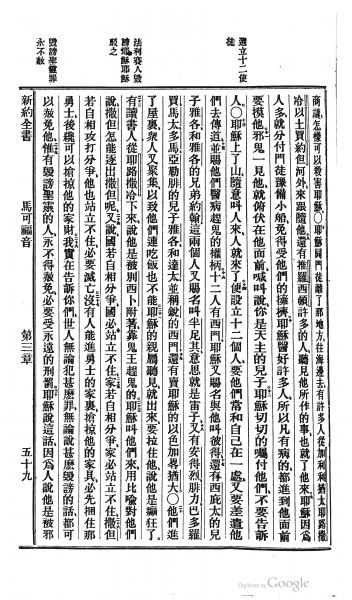 選立十二使
徒
法利賽人毀
謗耶穌耶穌
駁之
毀謗聖靈罪
永不赦
商議、怎樣可以殺害耶穌。○耶穌同門徒離了那地方、往海邊去、有許多人、從加利利猶大耶路撒
冷以土買約但河外、來跟隨他、還有推羅西頓許多的人、聽見他所作的事、也就了他來、耶穌因爲
人多、就分付門徒豫備小船、免得受他們的擁擠、耶穌醫好許多人、所以凡有病的、都進到他面前
要摸他、邪鬼一見他、就俯伏在他面前、喊叫說、你是天主的兒子、耶穌切切的囑付他們、不要告訴
人。○耶穌上了山、隨意叫人來、人就來了、便設立十二個人、要他們常和自己在一處、又要差遣他
們去傳道、並賜他們醫病趕鬼的權柄、十二人有西門、耶穌又賜名與他、叫彼得、還有西庇太的兒
子雅各、和雅各的兄弟約翰、這兩個人、又賜名叫半尼其、意思就是雷子、又有安得烈腓力巴多羅
買馬太多馬、亞勒腓的兒子雅各、和達太、並稱銳的西門、還有賣耶穌的以色加畧猶大。○他們進
了屋裏、衆人又聚集、以致他們連喫飯也不能、耶穌的親屬聽見、就出來要拉住他、說、他是癲狂了、
有讀書人、從耶路撒冷下來、說他是被別西卜附著、靠鬼王趕鬼的、耶穌叫他們來、用比喻對他們
說、撒但怎能逐出撒但呢、又說、國若自相分爭、國必站立不住、家若自相分爭、家必站立不住、撒但
若自相攻打分爭、他也站立不住、必要滅亡、沒有人能進勇士的家裏、搶掠他的家具、必先捆住那
勇士、後纔可以搶掠他的家財、我實在告訴你們、世人無論犯甚麼罪、無論說甚麼毀謗的話、都可
以赦免、他惟有毀謗聖靈的人、永不得赦免、必要受永遠的刑罰、耶穌說這話、因爲人說他是被邪
新約全書　馬可福音　第三章　五十九
Digitized by Google